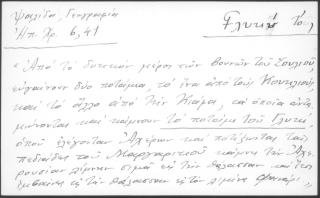 Ψαλίδα, Γεωγραφία
Ηπ. Χρ. 6, 41
Γλυκύ Το,
«Από το δυτικόν μέρος των βουνών του Σουλιού
ευγαίνουν δύο ποτάμια, το ένα από τους
και το άλλο από την και οποία
μώνονται και κάμνουν το ποτάμι του Γλυκύ
οπού λέγονταν Αχέρων και ποτίζωντας τους
πεδιάδες του Μαργαριτιού κάμνει την Αχε-
ρουσίαν λίμνην σιμά εις την θάλασσαν και
εις την θάλασσαν εις το λιμένι Φανάρι»